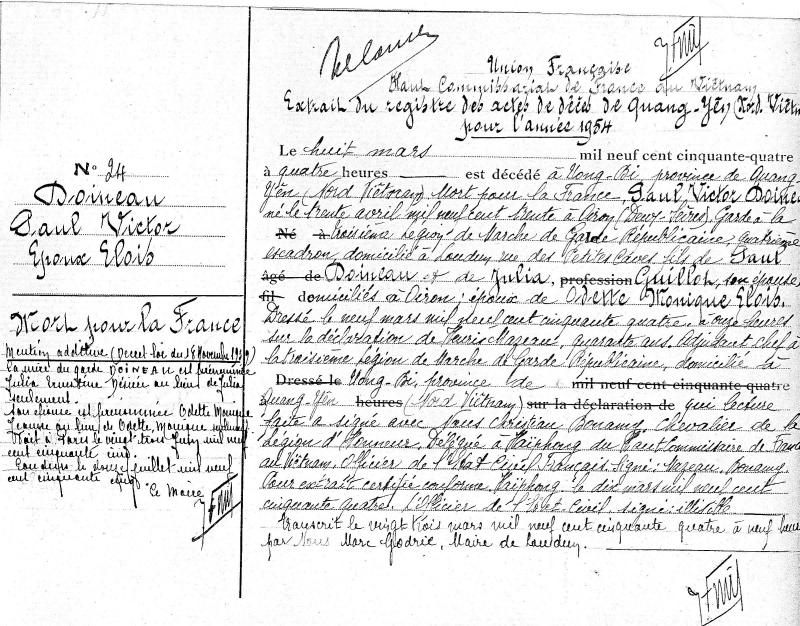 N° 24
Doineau
Paul Victor
Epoux Elois
Mort pour la France
Mention additive (Décret loi du 18 Novembre
la mère du garde DOINEAU est prénommée
Julia Ernestine Désirée au lieu de Julia
seulement.
Son épouse est prénommée Odette Monique
au lieu de Odette, Monique
Fait à Paris le vingt trois Juin mil neuf
cent cinquante cinq.
Loudun le douze juillet mil neuf
cent cinquante cinq
Le Maire
Union Française
Haut Commissariat de France au Viêtnam
Extrait du registre des actes de décès de Quang-Yên (Nord. Viêtn
pour l'année 1954
Le huit mars mil neuf cent cinquante-quatre
à quatre heures est décédé à Uong-Bi province de Quang-
Yên (Nord Viêtnam) Mort pour la France, Paul, Victor Doineau
né le trente avril mil neuf cent trente à Airon (Deux-Sèvres) Garde à la
Né à troisième Légion de Marche de Garde Républicaine, quatrième
escadron, domicilié à Loudun rue des Petites Caves fils de Paul
âgé de Doineau et de Julia, profession Guillot, son épouse,
fil domiciliés à Airon ; époux de Odette Monique Elois.
Dressé le neuf mars mil neuf cent cinquante quatre, à onze heures
sur la déclaration de Henri Mazeau, quarante ans, Adjudant chef à
la troisième Légion de Marche de Garde Républicaine, domicilié à
Dressé le Uong-Bi, province de mil neuf cent cinquante-quatre
Quang-Yên heures (Nord Viêtnam) sur la déclaration de qui lecture
faite a signé avec Nous Christian Bonamy, Chevalier de la
Légion d'Honneur, Délégué à Haiphong du Haut Commissaire de France
au Viêtnam, Officier de l'Etat Civil Français. Signé: Mazeau, Bonamy.
Pour extrait certifié conforme, Haiphong, le dix mars mil neuf cent
cinquante quatre, l'Officier de l'Etat-Civil, signé: illisible
Transcrit le vingt trois mars mil neuf cent cinquante quatre à neuf heures
par Nous Marc Godrie, Maire de Loudun.